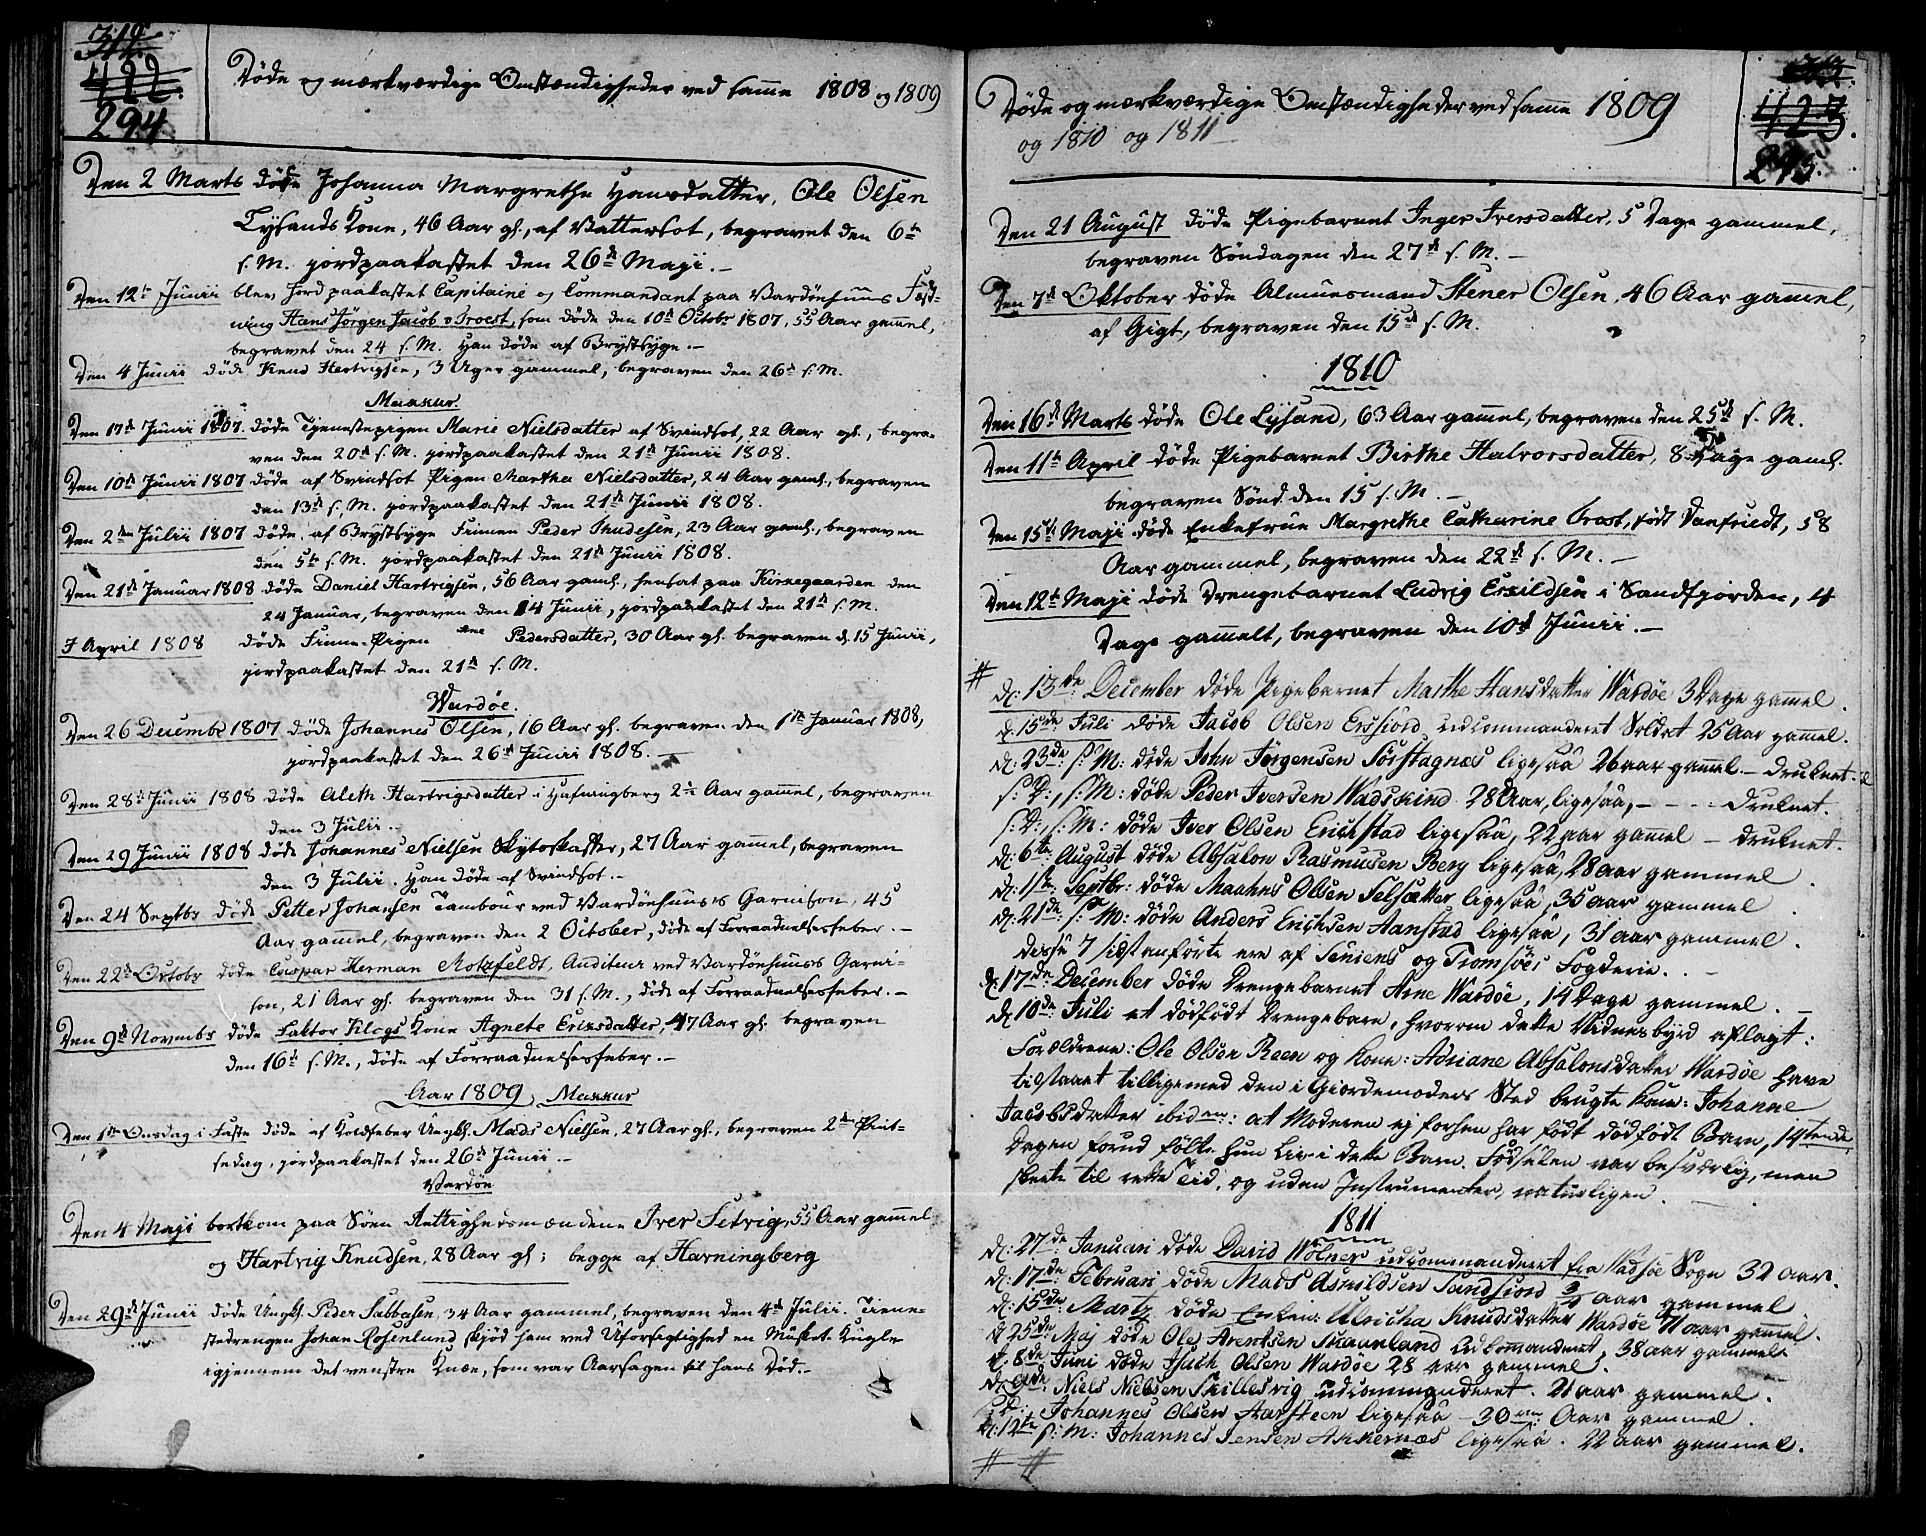 312
422
294
Døde og mærkværdige Omstændigheder ved samme 1808 og 1809
Den 2 Marts døde Johanna Margrethe Hansdatter, Ole Olsen
Lysands Kone, 46 Aar gl., af Vattersot, begravet den 6te
s. M. jordpaakastet den 26de Maji.
Den 12te Junii blev Jordpaakastet Capitaine og Commandant paa Vardøehuus Fæst-
ning Hans Jørgen Jacob v Troest, som døde den 10de Octobr 1807, 55 Aar gammel,
begravet den 24 s. M. Han døde af Brystsyge.
Den 4 Junii døde Knud Hertvigsen, 3 Uger gammel, begraven den 26de s. M.
Makkur.
Den 17de Junii 1807 døde Tjenestepigen Marie Nielsdatter af Svindsot, 22 Aar gl., begra-
ven den 20de s. M. jordpaakastet den 21de Junii 1808.
Den 10de Junii 1807 døde af Svindsot Pigen Martha Nielsdatter, 24 Aar gaml., begraven
den 13de s. M. jordpaakastet den 21de Junii 1808.
Den 2den Julii 1807 døde af Brystsyge Finnen Peder Thudesen, 23 Aar gaml., begraven
den 5te s. M. jordpaakastet den 21de Junii 1808.
Den 21de Januar 1808 døde Daniel Hartvigsen, 56 Aar gaml., hensat paa Kirkegaarden den
24 Januar, begraven den 14 Junii, jordpaakastet den 21de s. M.
7 April 1808 døde Finne-Pigen Ane Pedersdatter, 30 Aar gl. begraven d. 15 Junii,
jordpaakastet den 21de s. M.
Wardøe.
Den 26 Decembr 1807 døde Johannes Olsen, 16 Aar gl. begraven den 1te Januar 1808,
jordpaakastet den 26de Junii 1808.
Den 28de Junii 1808 døde Aleth Hartvigsdatter i Hafningberg 2½ Aar gammel, begraven
den 3 Julii.
Den 29 Junii 1808 døde Johannes Nielsen Skytoskaffer, 27 Aar gammel, begraven
den 3 Julii. Han døde af Svindsot.
Den 24 Septbr døde Petter Johansen Tambour ved Vardøehuuses Garnison, 45
Aar gammel, begraven den 2 October, døde af Forraadnelsesfeber.
Den 22de Octobr døde Caspar Herman Rotzfeldt, Auditeur ved Vardøehuuses Garni-
son, 21 Aar gl. begraven den 31 s. M., døde af Forraadnelsesfeber.
Den 9de Novembr døde Faktor Klogs Kone Agnete Eriksdatter, 47 Aar gl. begraven
den 16de s. M., døde af Forraadnelsesfeber.
Aar 1809 Makkur
Den 1te Onsdag i Faste døde af Koldfeber Ungk. Mads Nielsen, 27 Aar gl., begraven 2den Pint-
sedag, jordpaakastet den 26de Junii.
Vardøe
Den 4 Maji bortkom paa Søen Rettighedsmændene Iver Setvig, 55 Aar gammel
og Hartvig Knudsen, 28 Aar gl; begge af Havningberg
Den 29de Junii døde Ungk. Peder Sabbasen, 34 Aar gammel, begraven den 4de Julii. Tiene-
stedrengen Johan Rosenlund skjød ham ved Uforsigtighed en Musket-Kugle
igjennem det venstre Knæe, som var Aarsagen til hans Død.
423
295
Døde og mærkværdige Omstændigheder ved samme 1809
og 1810 og 1811
Den 21 August døde Pigebarnet Inger Iversdatter, 5 Dage gammel,
begraven Søndagen den 27de s. M.
Den 7de Oktober døde Almuesmand Stener Olsen, 46 Aar gammel,
af Gigt, begraven den 15de s. M.
1810
Den 16de Marts døde Ole Lysand, 63 Aar gammel, begraven den 25de s. M.
Den 11te April døde Pigebarnet Birthe Halvorsdatter, 8 Dage gaml.
begraven Sønd. den 15 s. M.
Den 15de Maji døde Enkefrue Margrethe Catharine Trost, født Danfriedt, 58
Aar gammel, begraven den 22de s. M.
Den 12te Maji døde Drengebarnet Ludvig Eskildsen i Sandfjorden, 4
Dage gammelt, begraven den 10de Junii.
# d: 13de December døde Pigebarnet Marthe Hansdatter Wardøe 3 Dage gammel.
d: 15de Juli døde Jacob Olsen Ersfiord udcommanderet Soldat 25 Aar gammel.
d: 23de s: M: døde John Jørgensen Sørstagnæs ligesaa 26 aar gammel - druknet.
s: D:, s: M: døde Peder Iversen Wadskind 28 Aar, ligesaa, - druknet.
s: D:, s: M: døde Iver Olsen Erichstad ligesaa, 22 aar gamel - druknet.
d: 6te August døde Absalon Rasmussen Berg ligesaa, 28 aar gammel.
d: 1te Septbr: døde Maahns Olsen Selsætter ligesaa, 35 aar gammel.
d: 21de s: M: døde Anders Erichsen Aanstad ligesaa, 31 aar gammel.
disse 7 sidstanførte ere af Seniens og Tromsøes Fogderie.
d: 17de December døde Drengebarnet Arne Wardøe, 14 Dage gammel.
d: 10de Juli et dødfødt Drengebarn, hvorom dette Vidnesbyrd aflagt:
Forældrene: Ole Olsen Reen og Kone: Adriane Absalonsdatter Wardøe have
tilstaaet tilligemed den i Giordemoders Sted brugte Kone: Johanne
Jacobsdatter ibidem: at Moderen ej forhen har født dødfødt Barn, 14tende
Dagen forud følte hun Liv i dette Barn. Fødselen var besværlig, men
skeete til rette Tid, og uden Instrumenter, naturligen.
1811
d: 27de Januari døde David Wolner udcommanderet fra Wadsøe Sogn 32 aar.
d: 17de Februari døde Mads Asmildsen Sandfiord aar gammel
d: 15de Martz døde Enken: Ulricha Knudsdatter Wardøe 71 aar gammel.
d: 25de Maj døde Ole Arentsen Skaanland udcommanderet, 38 aar gammel
d: 8de Juni døde Isach Olsen Wardøe 28 aar gammel.
d: 9de Niels Nielsen Skillesvig udcommanderet. 21 aar gammel.
s: D: Johannes Olsen Aarsteen ligesaa - 30 Aar gammel.
d: 12te s: M: Johannes Jensen Akkernæs ligesaa. 22 aar gammel.
# #